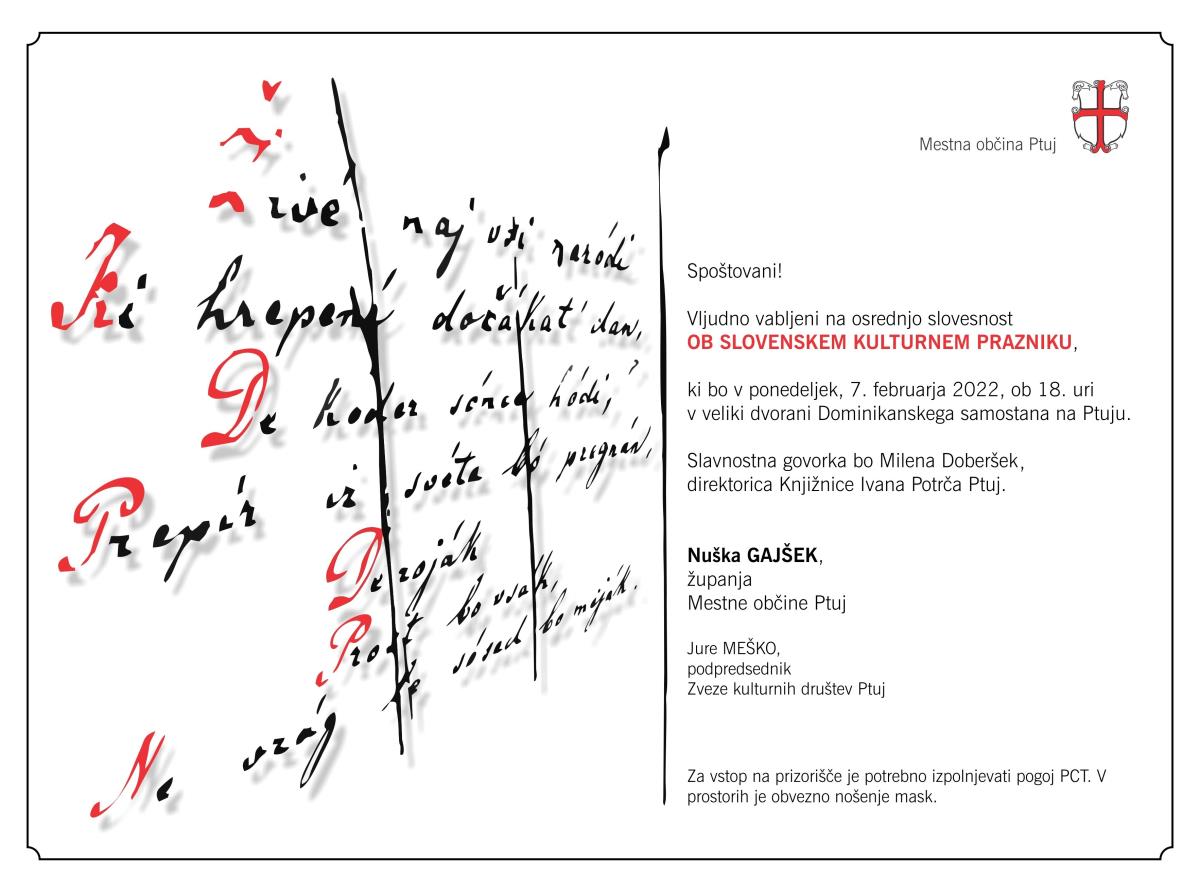 Živé naj vsi naródi
Ki hrepené dočakat' dan,
De koder sónce hódi,
Prepír iz svéta bó pregnán,
De roják
Prost bo vsak,
Ne vrág le sósed bo meják.
Mestna občina Ptuj
Spoštovani!
Vljudno vabljeni na osrednjo slovesnost
OB SLOVENSKEM KULTURNEM PRAZNIKU,
ki bo v ponedeljek, 7. februarja 2022, ob 18. uri
v veliki dvorani Dominikanskega samostana na Ptuju.
Slavnostna govorka bo Milena Doberšek,
direktorica Knjižnice Ivana Potrča Ptuj.
Nuška GAJŠEK,
županja
Mestne občine Ptuj
Jure MEŠKO,
podpredsednik
Zveze kulturnih društev Ptuj
Za vstop na prizorišče je potrebno izpolnjevati pogoj PCT. V
prostorih je obvezno nošenje mask.